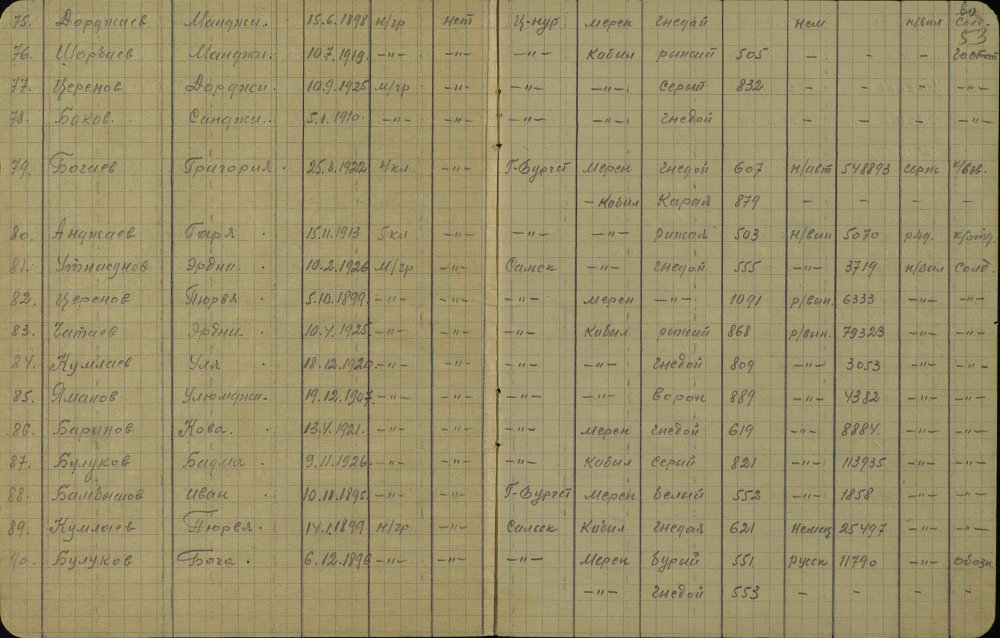 60
53
75. Дорджиев Манджи. 15.6.1898 н/гр нет Ц-нур мерен гнедой нем н/вил солд.
76. Шорваев Манджи. 10.7.1919. -"- -"- -"- Кобыл рыжий 505 - - -
77. Церенов Дорджи. 10.9.1925 м/гр -"- -"- -"- серый 832 - - - -"-
78. Боков. Санджи.. 5.1.1910. -"- -"- -"- -"- гнедой - - - -"-
79. Богаев Григория. 25.8.1922 4 кл. -"- Г-Бургст мерен гнедой 607 н/авт 548893 серж к/взв.
- Кобыл Карая 879 - - - -
80. Анджаев Гаря. 15.11.1913 5 кл -"- -"- -"- рыжая 503 н/вин 5070 ряд. к/отд.
81. Утнасунов Эрдни. 10.2.1926 м/гр -"- Сальск -"- гнедой 555 -"- 3719 н/вил солд.
82. Церенов Пюрвя. 5.10.1899. -"- -"- -"- мерен -"- 1091 р/вин. 6333 -"- -"-
83. Чатаев Эрдни. 10.4.1925. -"- -"- -"- Кобыл рыжий 868 р/вин. 79323 -"- -"-
84. Кумлаев Уля. 18.12.1920. -"- -"- -"- -"- гнедой 809 -"- 3053 -"- -"-
85. Яманов Улюмджи. 19.12.1907. -"- -"- -"- -"- ворон 889 -"- 4382 -"- -"-
86. Баринов Кова. 13.4.1921. -"- -"- -"- мерен гнедой 619 -"- 8884. -"- -"-
87. Булуков Бадма. 9.11.1926. -"- -"- -"- Кобыл серый 821 -"- 113935 -"- -"-
88. Бамбышов иван. 10.11.1895. -"- -"- Г-Бургст мерен белый 552 -"- 1858 -"- -"-
89. Кумлаев Пюрвя. 14.1.1899 н/гр -"- Сальск Кобыл гнедая 621 немец 25497 -"- -"-
90. Булуков Бога. 6.12.1896 -"- -"- -"- мерен бурый 551 русск 11790 -"- обозн
-"- гнедой 553 - - - -